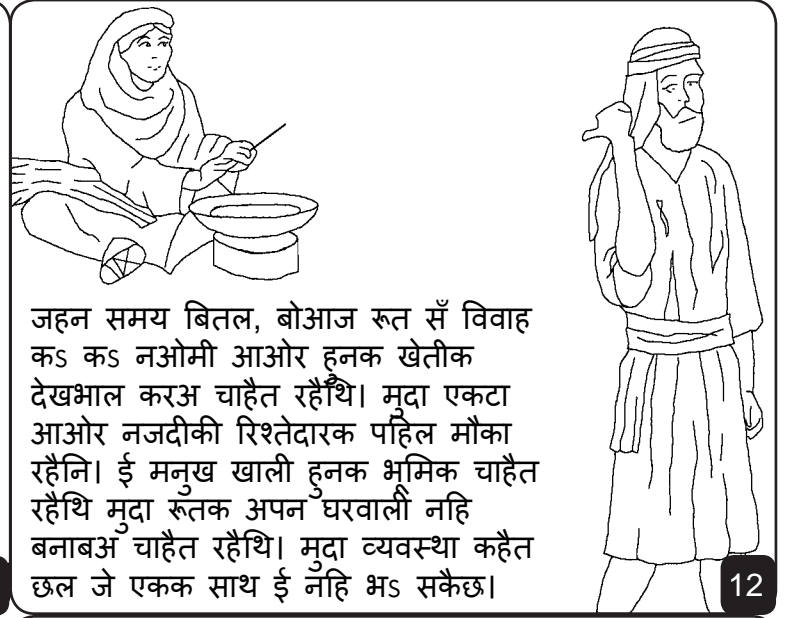 जहन समय बितल, बोआज रूत सँ विवाह
कऽ कऽ नओमी आओर हुनक खेतीक
देखभाल करअ चाहैत रहैथि। मुदा एकटा
आओर नजदीकी रिश्तेदारक पहिल मौका
रहैनि। ई मनुख खाली हुनक भूमिक चाहैत
रहैथि मुदा रूतक अपन घरवाली नहि
बनाबअ चाहैत रहैथि। मुदा व्यवस्था कहैत
छल जे एकक साथ ई नहि भऽ सकैछ।
12